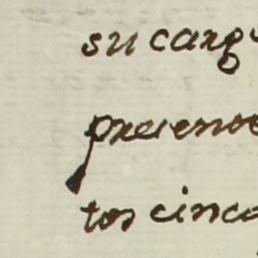 su carg
presenose
tos cinco